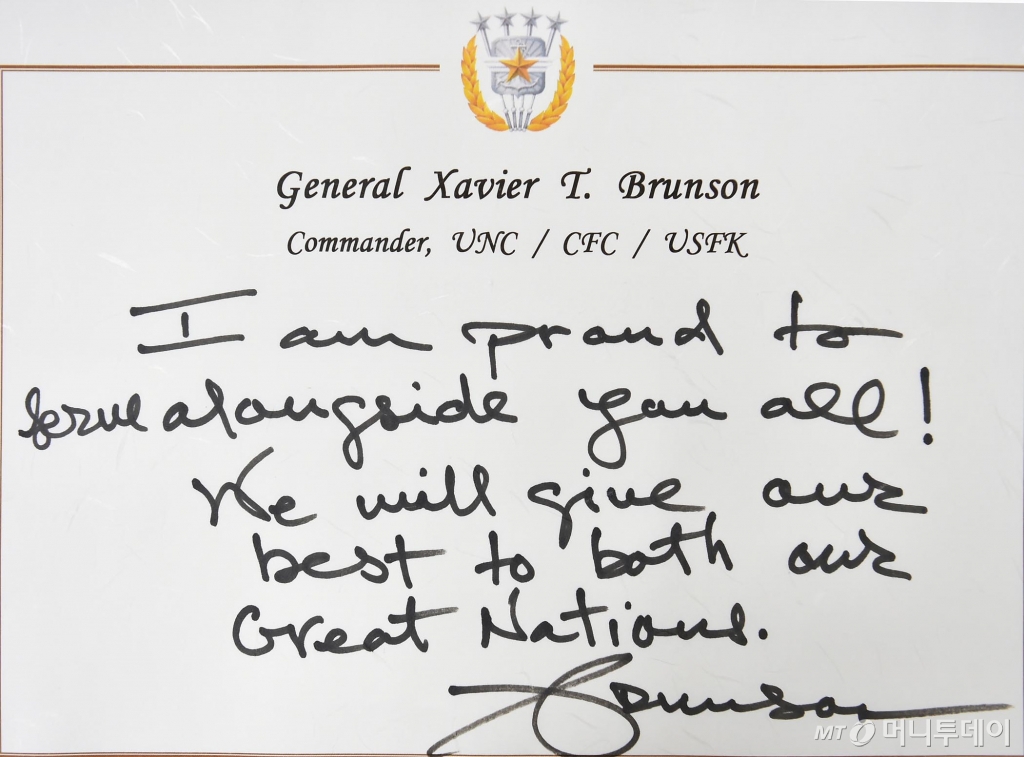 General Xavier T. Brunson
Commander, UNC / CFC / USFK
I am proud to
serve alongside you all!
We will give our
best to both our
Great Nations.
Brunson
MT 머니투데이